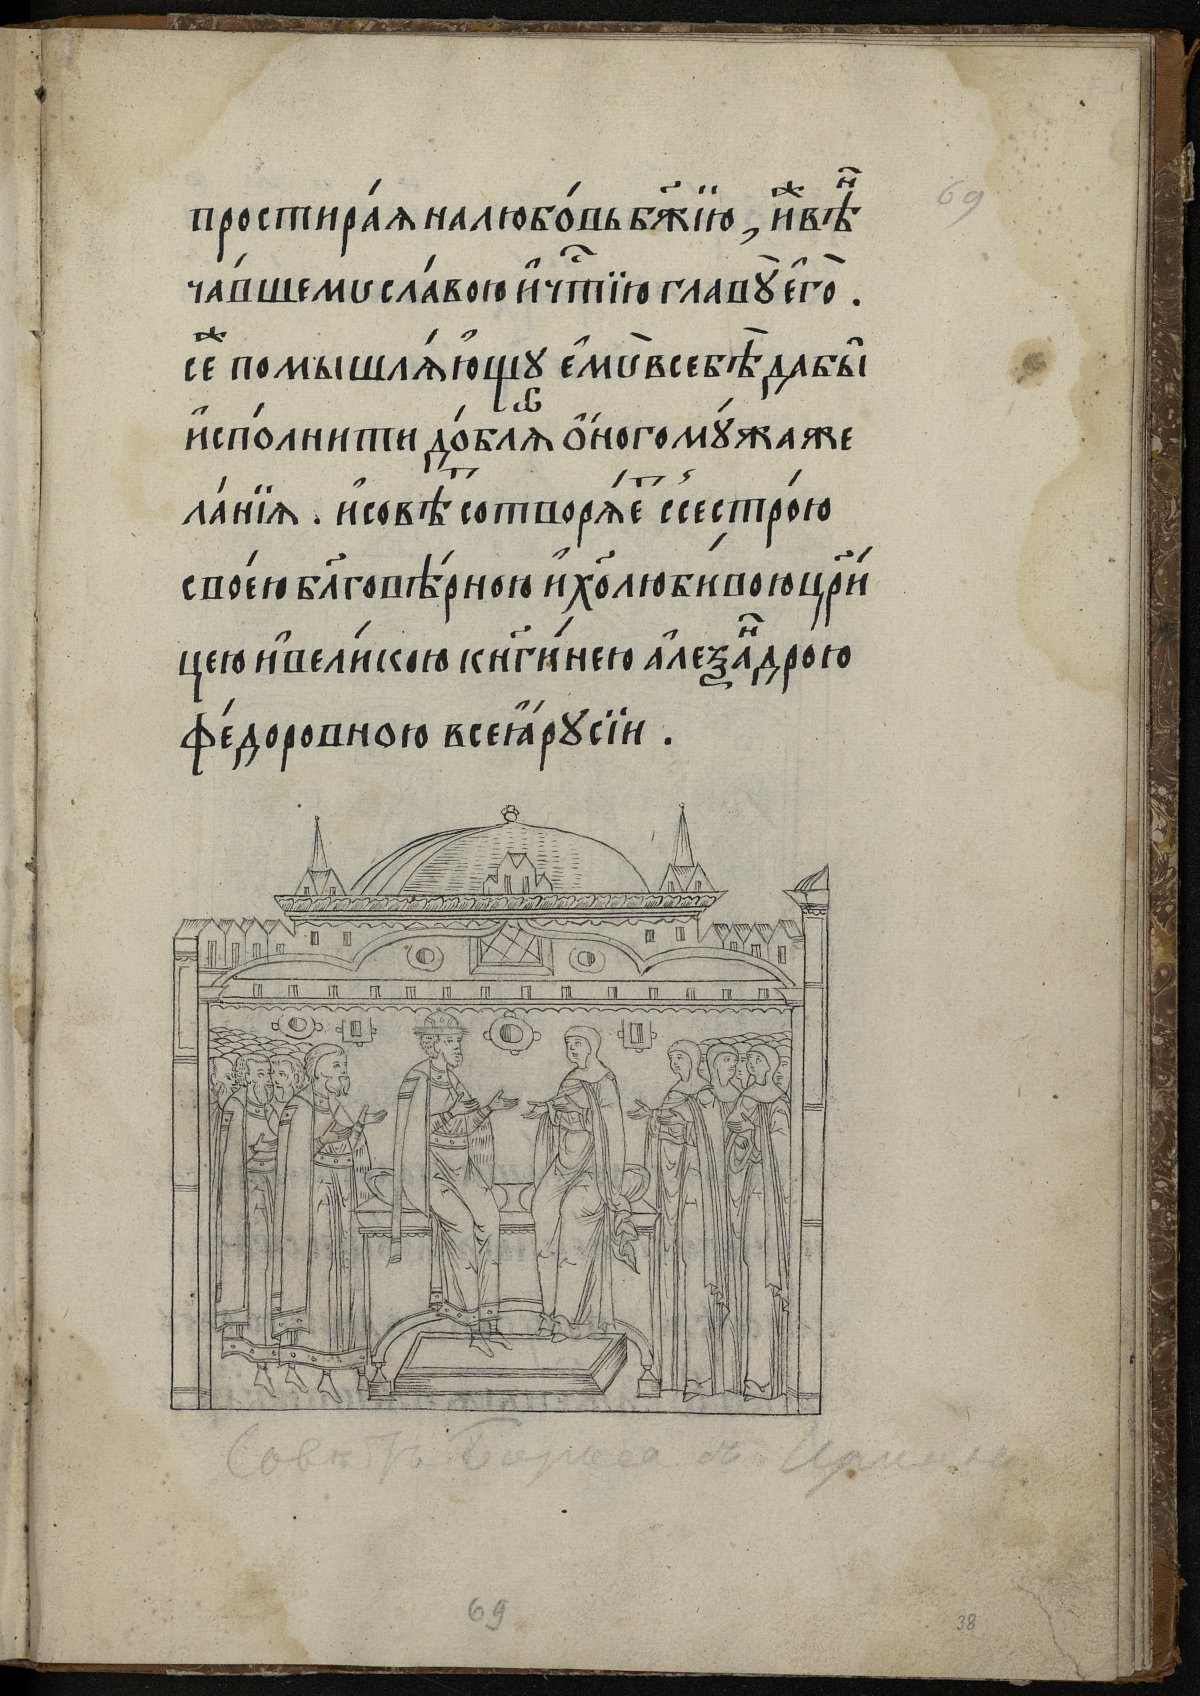 69
простира́ꙗ налюбо́вь бж҃їю, и҆же вѣн
ча́вшему сла́вою и҆ чт҃їю главꙋ̀ є҆гѡ̀.
се́же помышлѧ́ющꙋ є҆мꙋ̀ всебѣ̀ дабы̀
и҆спо́лнити до́блѧꙗ ѻ҆́ного мꙋ́жа же
ла́нїѧ. и҆ совѣ́т сотворѧ́ет съсестро́ю
свое́ю бл҃говѣ́рною и҆ хр҃олюби́вою цр҃и́
цею и҆ вели́кою кнг҃и́нею а҆леѯа́ндрою
фе́доровною всеѧ̀ рꙋсїи.
Совѣтъ Бориса съ Ириною
69
38